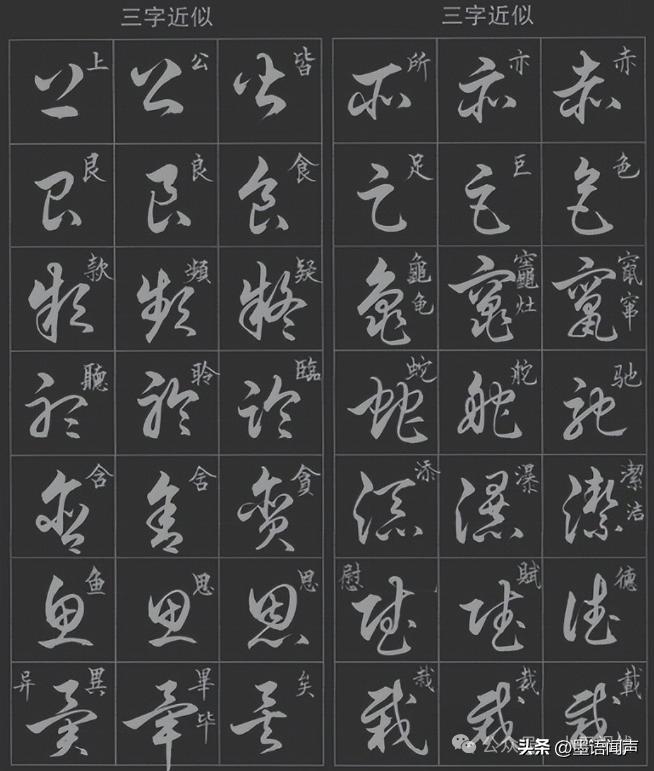 三字近似
上 公 皆
艮 良 食
款 頻 疑
聽 聆 臨
含 舍 貪
鱼 思 思
异 異 畢 毕 矣
三字近似
所 亦 赤
足 巨 色
龜 龟 竈 灶 竄 窜
蛇 舵 驰
添 瀑 潔 洁
慰 賦 德
栽 裁 載
头条 @墨语闻声